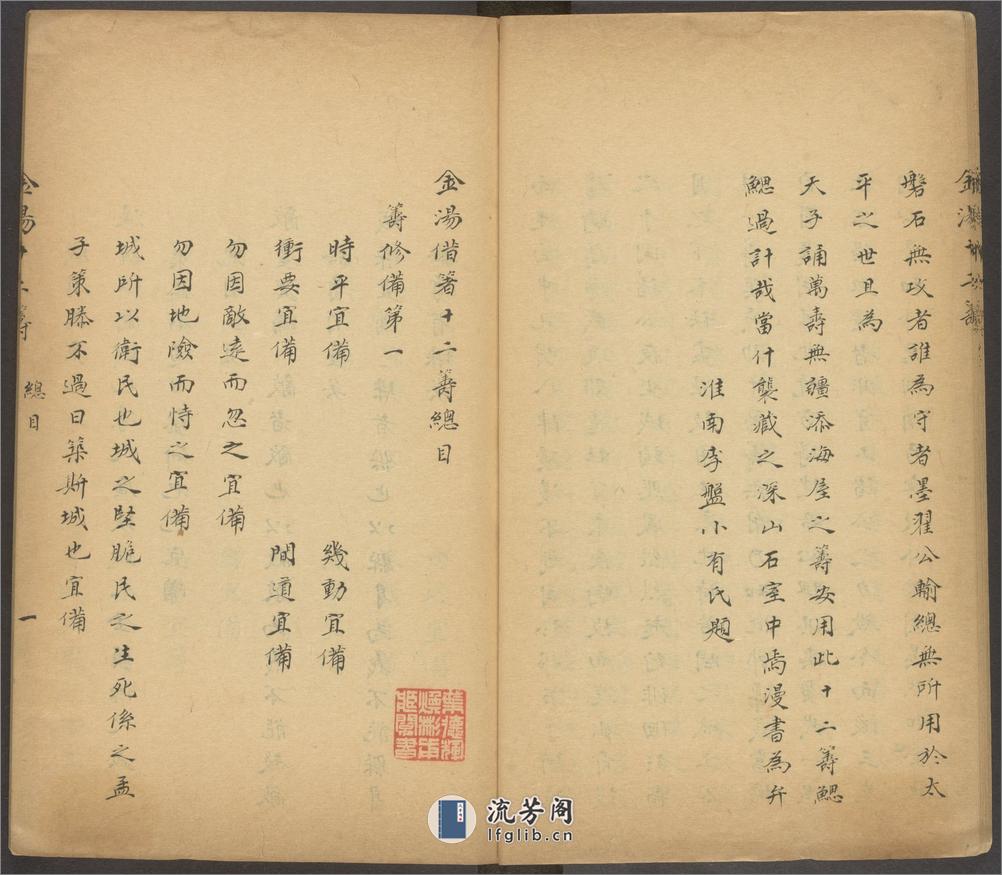 磐石無攻者誰為守者墨翟公輸總無所用於太
平之世且為
天子誦萬壽無疆添海屋之籌安用此十二籌鰓
鰓過計哉當什襲藏之深山石室中焉漫書為弁
淮南李盤小有氏題
金湯借箸十二籌總目
籌修備第一
時平宜備 幾動宜備
衝要宜備 間道宜備
勿因敵遠而忽之宜備
勿因地險而恃之宜備
城所以衛民也城之堅脆民之生死係之孟
子策滕不過曰築斯城也宜備
總目 一
葉德輝
煥彬甫
藏閱書
流芳阁
lfglib.cn